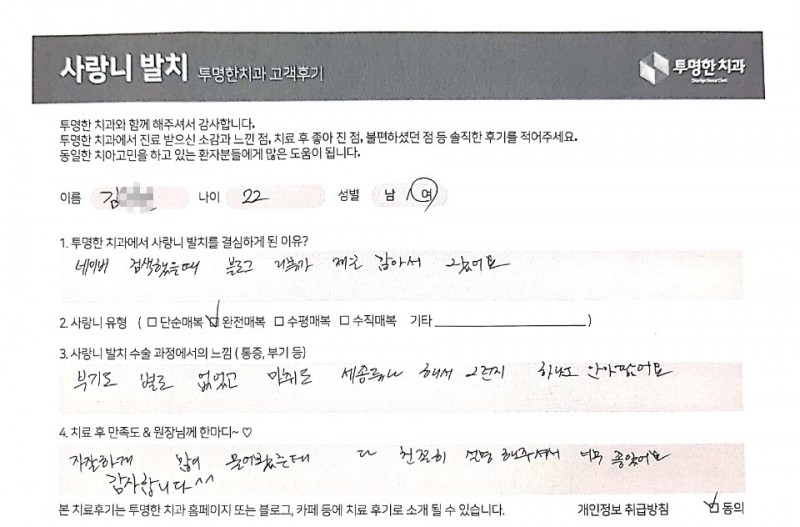 사랑니 발치 투명한치과 고객후기
투명한치과
투명한 치과와 함께 해주셔서 감사합니다.
투명한 치과에서 진료 받으신 소감과 느낀 점, 치료 후 좋아 진 점, 불편하셨던 점 등 솔직한 후기를 적어주세요.
동일한 치아고민을 하고 있는 환자분들에게 많은 도움이 됩니다.
이름 김 나이 22 성별 남 / 여
1. 투명한 치과에서 사랑니 발치를 결심하게 된 이유?
네이버 검색했을때 블로그 리뷰가 제일 많아서
2. 사랑니 유형 ( □ 단순매복 ☑ 완전매복 □ 수평매복 □ 수직매복 기타 )
3. 사랑니 발치 수술 과정에서의 느낌 ( 통증, 부기 등)
부기도 별로 없었고 마취도 해서 그런지 하나도 안아팠어요
4. 치료 후 만족도 & 원장님께 한마디~ ♡
자잘하게 많이 물어봤는데 다 친절히 설명 해주셔서 너무 좋았어요
감사합니다^^
본 치료후기는 투명한 치과 홈페이지 또는 블로그, 카페 등에 치료 후기로 소개 될 수 있습니다. 개인정보 취급방침 ☑ 동의